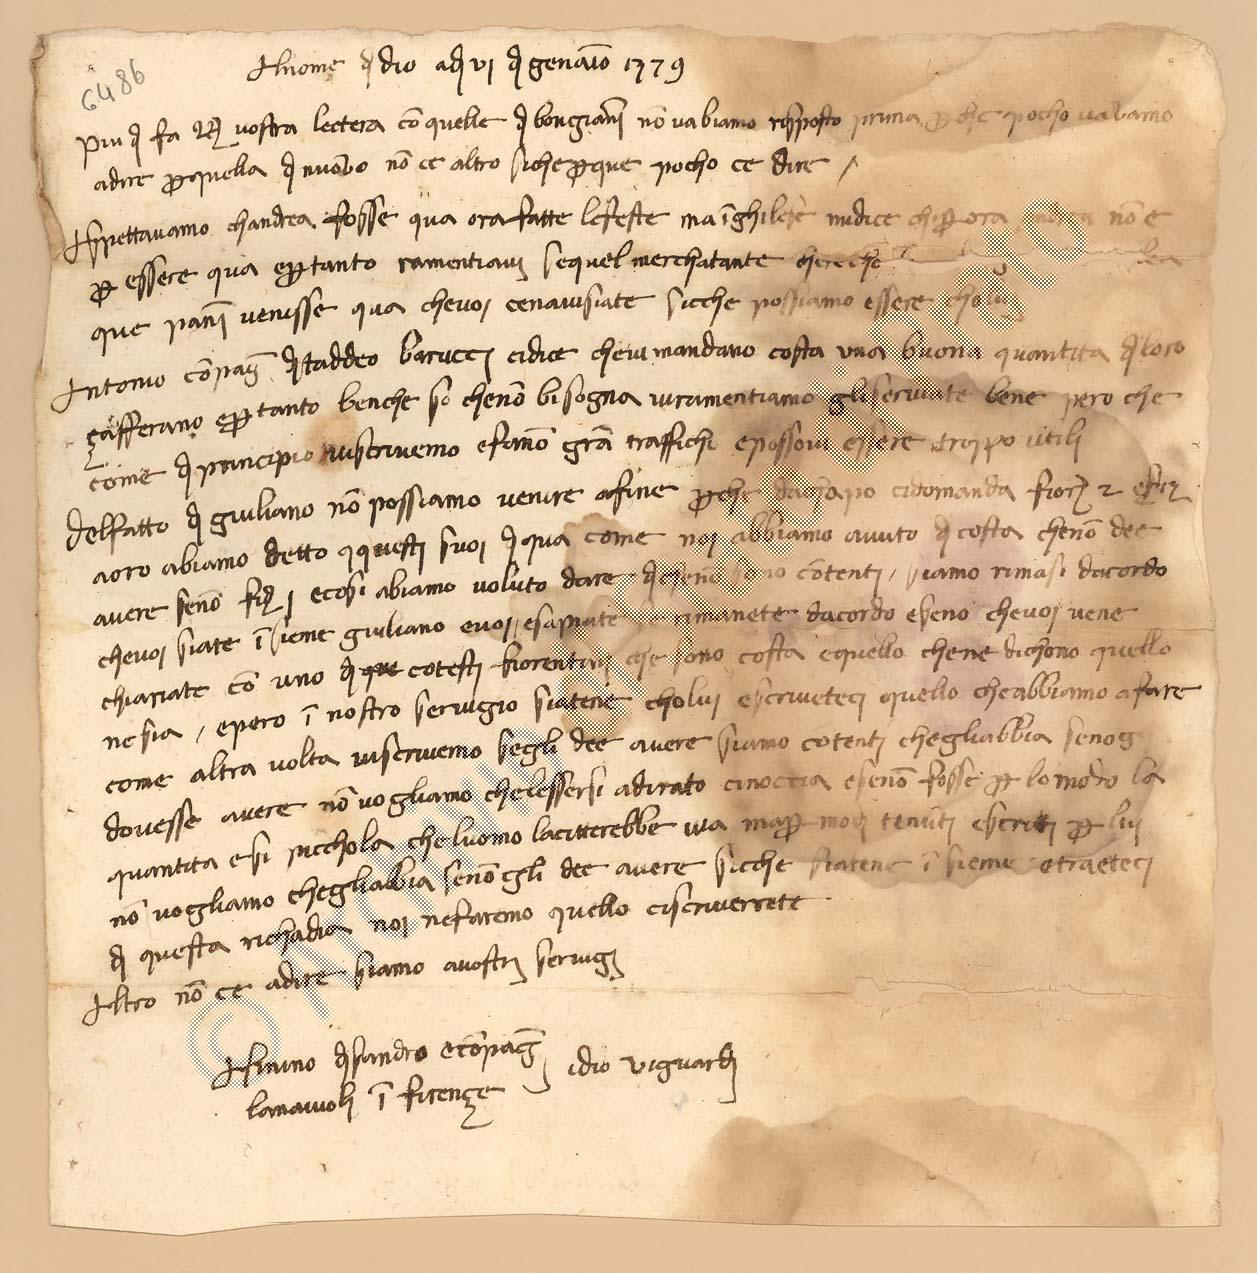 6486
Al nome di dio adi vi di genaio 1379
Piu di fa R vostra lectera con quelle di bongianni non vabiamo risposto prima perche pocho vavamo
adire per quella di nuovo non ce altro siche perque pocho ce dire /
Aspettavamo chandrea fosse qua ora fatte lefeste ma inghilese midice cheper ora non e
per essere qua epertanto ramentiavi sequel merchatante
que panni venisse qua chevoi cenavisiate sicche possiamo essere cholui
Antonio conpag di taddeo barucci cidice chevi mandano costa una buona quantita di loro
çafferano epertanto benche so chenon bisogna viramentiamo gliserviate bene pero che
come di principio viscrivemo efanno gran traffichi epossovi essere troppo utili
delfatto di giuliano non possiamo venire afine perche cidomanda fior 2
aoro abiamo detto qquesti suoi di qua come noi abbiamo avuto di costa chenon dee
avere senon ecosi abiamo voluto dare contenti / siamo rimasi dacordo
chevoi siate insieme giuliano evoi / esapiate rimanete dacordo eseno chevoi vene
chiariate con uno di cotesti fiorentini che sono costa equello chene dichono quello
nesia / epero in nostro servigio siatene cholui escriveteci quello cheabbiamo afare
come altra volta viscrivemo segli dee avere siamo cotenti chegliabbia seno
dovesse avere non vogliamo chelessersi adirato cinoccia esenon fosse per lomodo la
quantita esi picchola cheluomo lacitterebbe via maper modi tenuti escritti per lui
non vogliamo chegliabbia senon gli dee avere sicche siatene insieme etraeteci
di questa richadia noi nefaremo quello ciscriverrete
Altro non ce adire siamo avostri servigi
Asinino disandro econpagni idio viguardi
lanaiuoli in firençe
© ARCHIVIO DI STATO DI PRATO